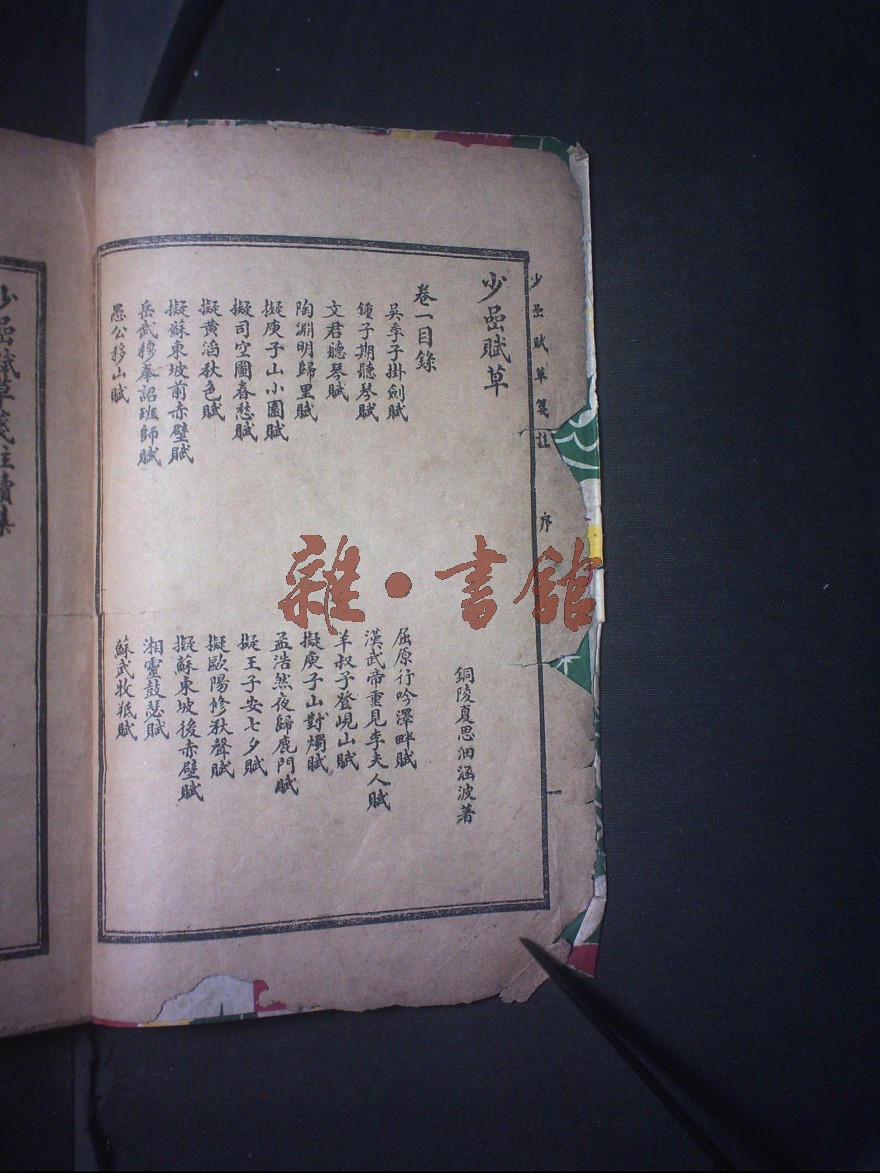 少喦賦草箋註
序
一
少喦賦草
銅陵夏思沺涵波著
卷一目錄
吳季子掛劍賦
屈原行吟澤畔賦
鍾子期聽琴賦
漢武帝重見李夫人賦
文君聽琴賦
羊叔子登峴山賦
陶淵明歸里賦
擬庾子山對燭賦
擬庾子山小園賦
孟浩然夜歸鹿門賦
擬司空圖春愁賦
擬王子安七夕賦
擬黃滔秋色賦
擬歐陽修秋聲賦
擬蘇東坡前赤壁賦
擬蘇東坡後赤壁賦
岳武穆奉詔班師賦
湘靈鼓瑟賦
愚公移山賦
蘇武牧羝賦
少喦賦草箋註續集
雜·書館